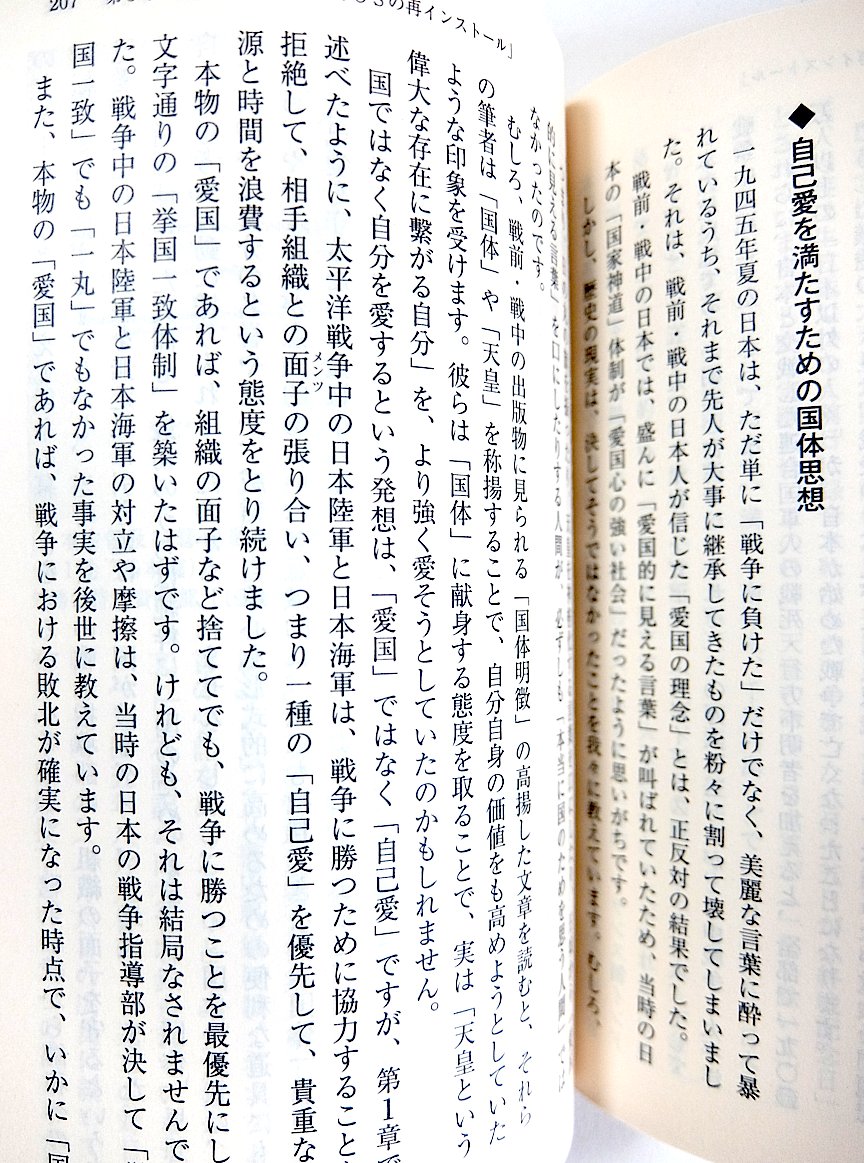 ◆自己愛を満たすための国体思想
一九四五年夏の日本は、ただ単に「戦争に負けた」だけでなく、美麗な言葉に酔って暴
れているうち、それまで先人が大事に継承してきたものを粉々に割って壊してしまいまし
た。それは、戦前・戦中の日本人が信じた「愛国の理念」とは、正反対の結果でした。
戦前・戦中の日本では、盛んに「愛国的に見える言葉」が叫ばれていたため、当時の日
本の「国家神道」体制が「愛国心の強い社会」だったように思いがちです。
しかし、歴史の現実は、決してそうではなかったことを我々に教えています。むしろ、
的に見える言葉」を口にしたりする人間が、必ずしも「本当に国のためを思う人間」では
なかったのです。
むしろ、戦前・戦中の出版物に見られる「国体明徴」の高揚した文章を読むと、それら
の筆者は「国体」や「天皇」を称揚することで、自分自身の価値をも高めようとしていた
ような印象を受けます。彼らは「国体」に献身する態度を取ることで、実は「天皇という
偉大な存在に繋がる自分」を、より強く愛そうとしていたのかもしれません。
国ではなく自分を愛するという発想は、「愛国」ではなく「自己愛」ですが、第1章で
述べたように、太平洋戦争中の日本陸軍と日本海軍は、戦争に勝つために協力すること
拒絶して、相手組織との面子の張り合い、つまり一種の「自己愛」を優先して、貴重な
メンツ
源と時間を浪費するという態度をとり続けました。
本物の「愛国」であれば、組織の面子など捨ててでも、戦争に勝つことを最優先にし
文字通りの「挙国一致体制」を築いたはずです。けれども、それは結局なされませんで
た。戦争中の日本陸軍と日本海軍の対立や摩擦は、当時の日本の戦争指導部が決して「
国一致」でも「一丸」でもなかった事実を後世に教えています。
また、本物の「愛国」であれば、戦争における敗北が確実になった時点で、いかに「国
207
の再インストール」